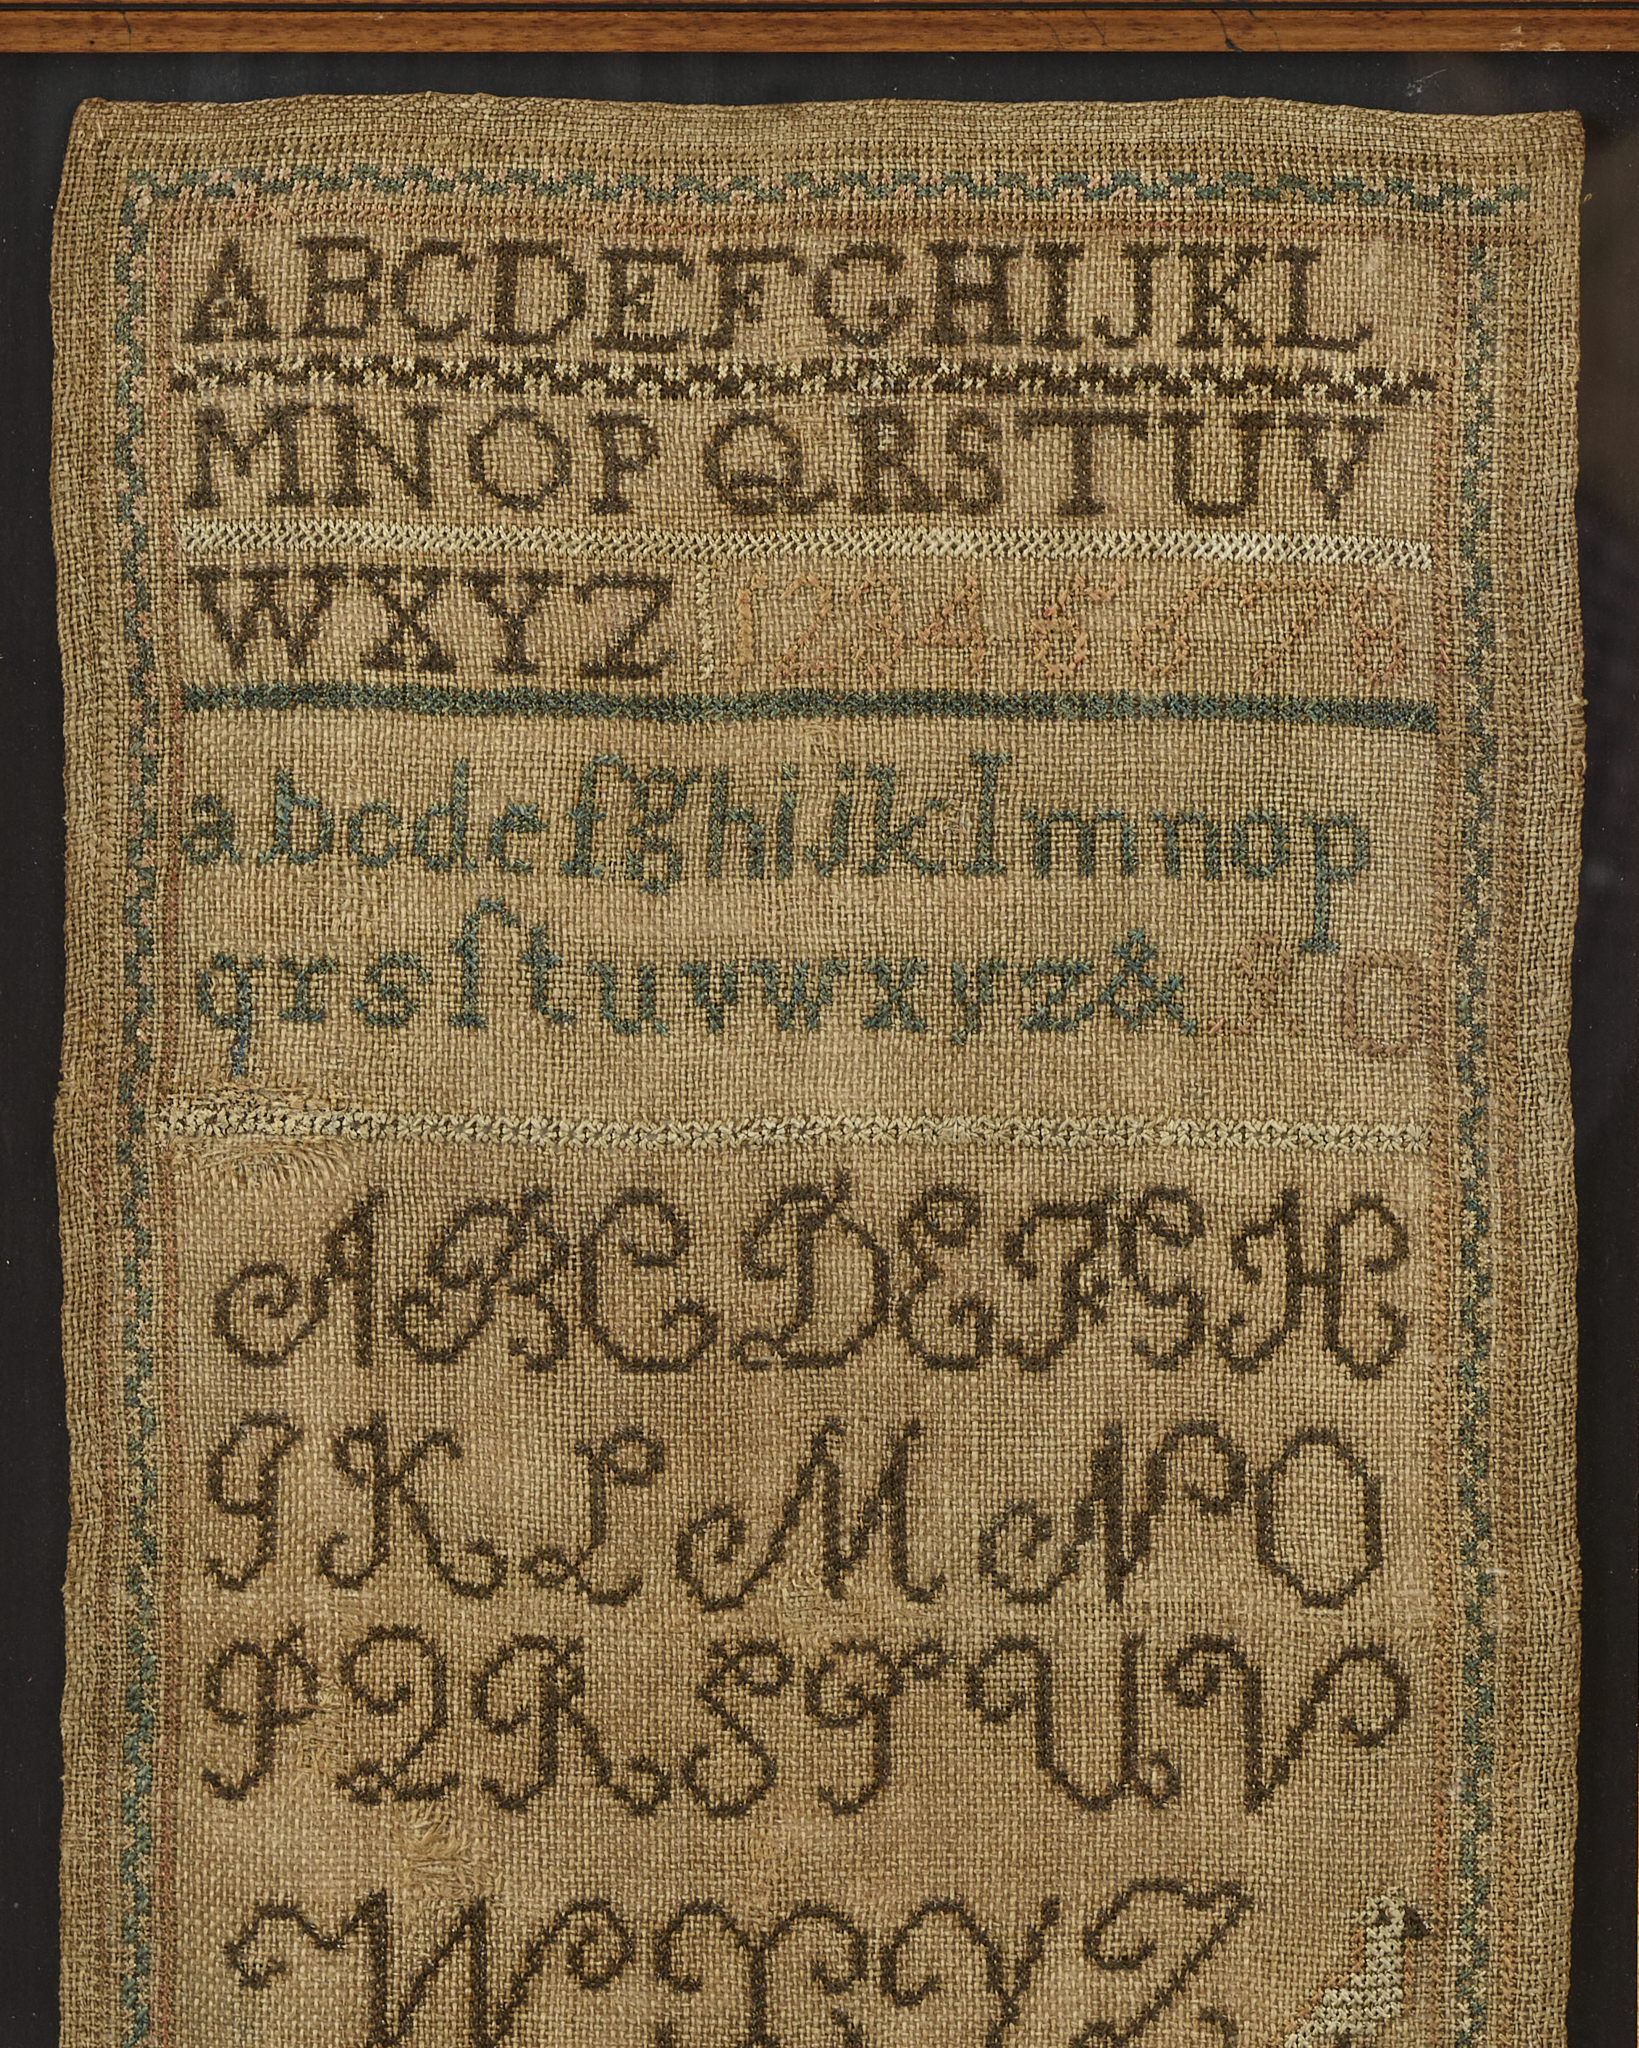 ABCDEFGHIJKL
MNOPQRSTUV
WXYZ 12345678
abcdefghijklmnop
qrsſtuvwxyz& 0
ABCDEFGH
IKLMNO
PQRSTUV
WXYZ